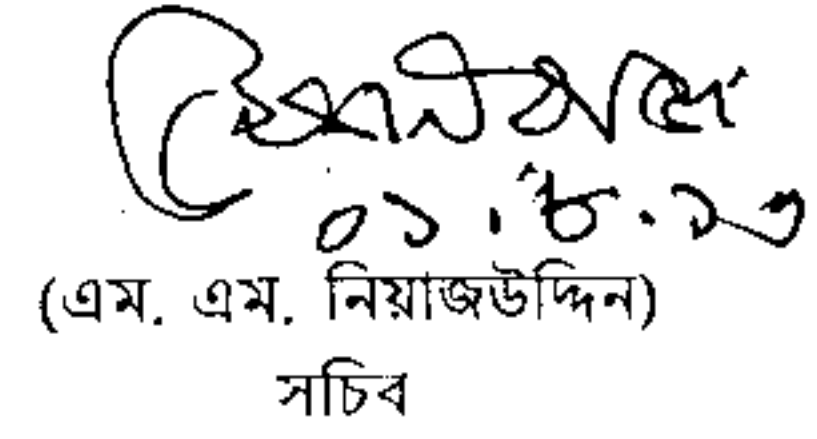 ০১.৮.১৩
(এম. এম. নিয়াজউদ্দিন)
সচিব